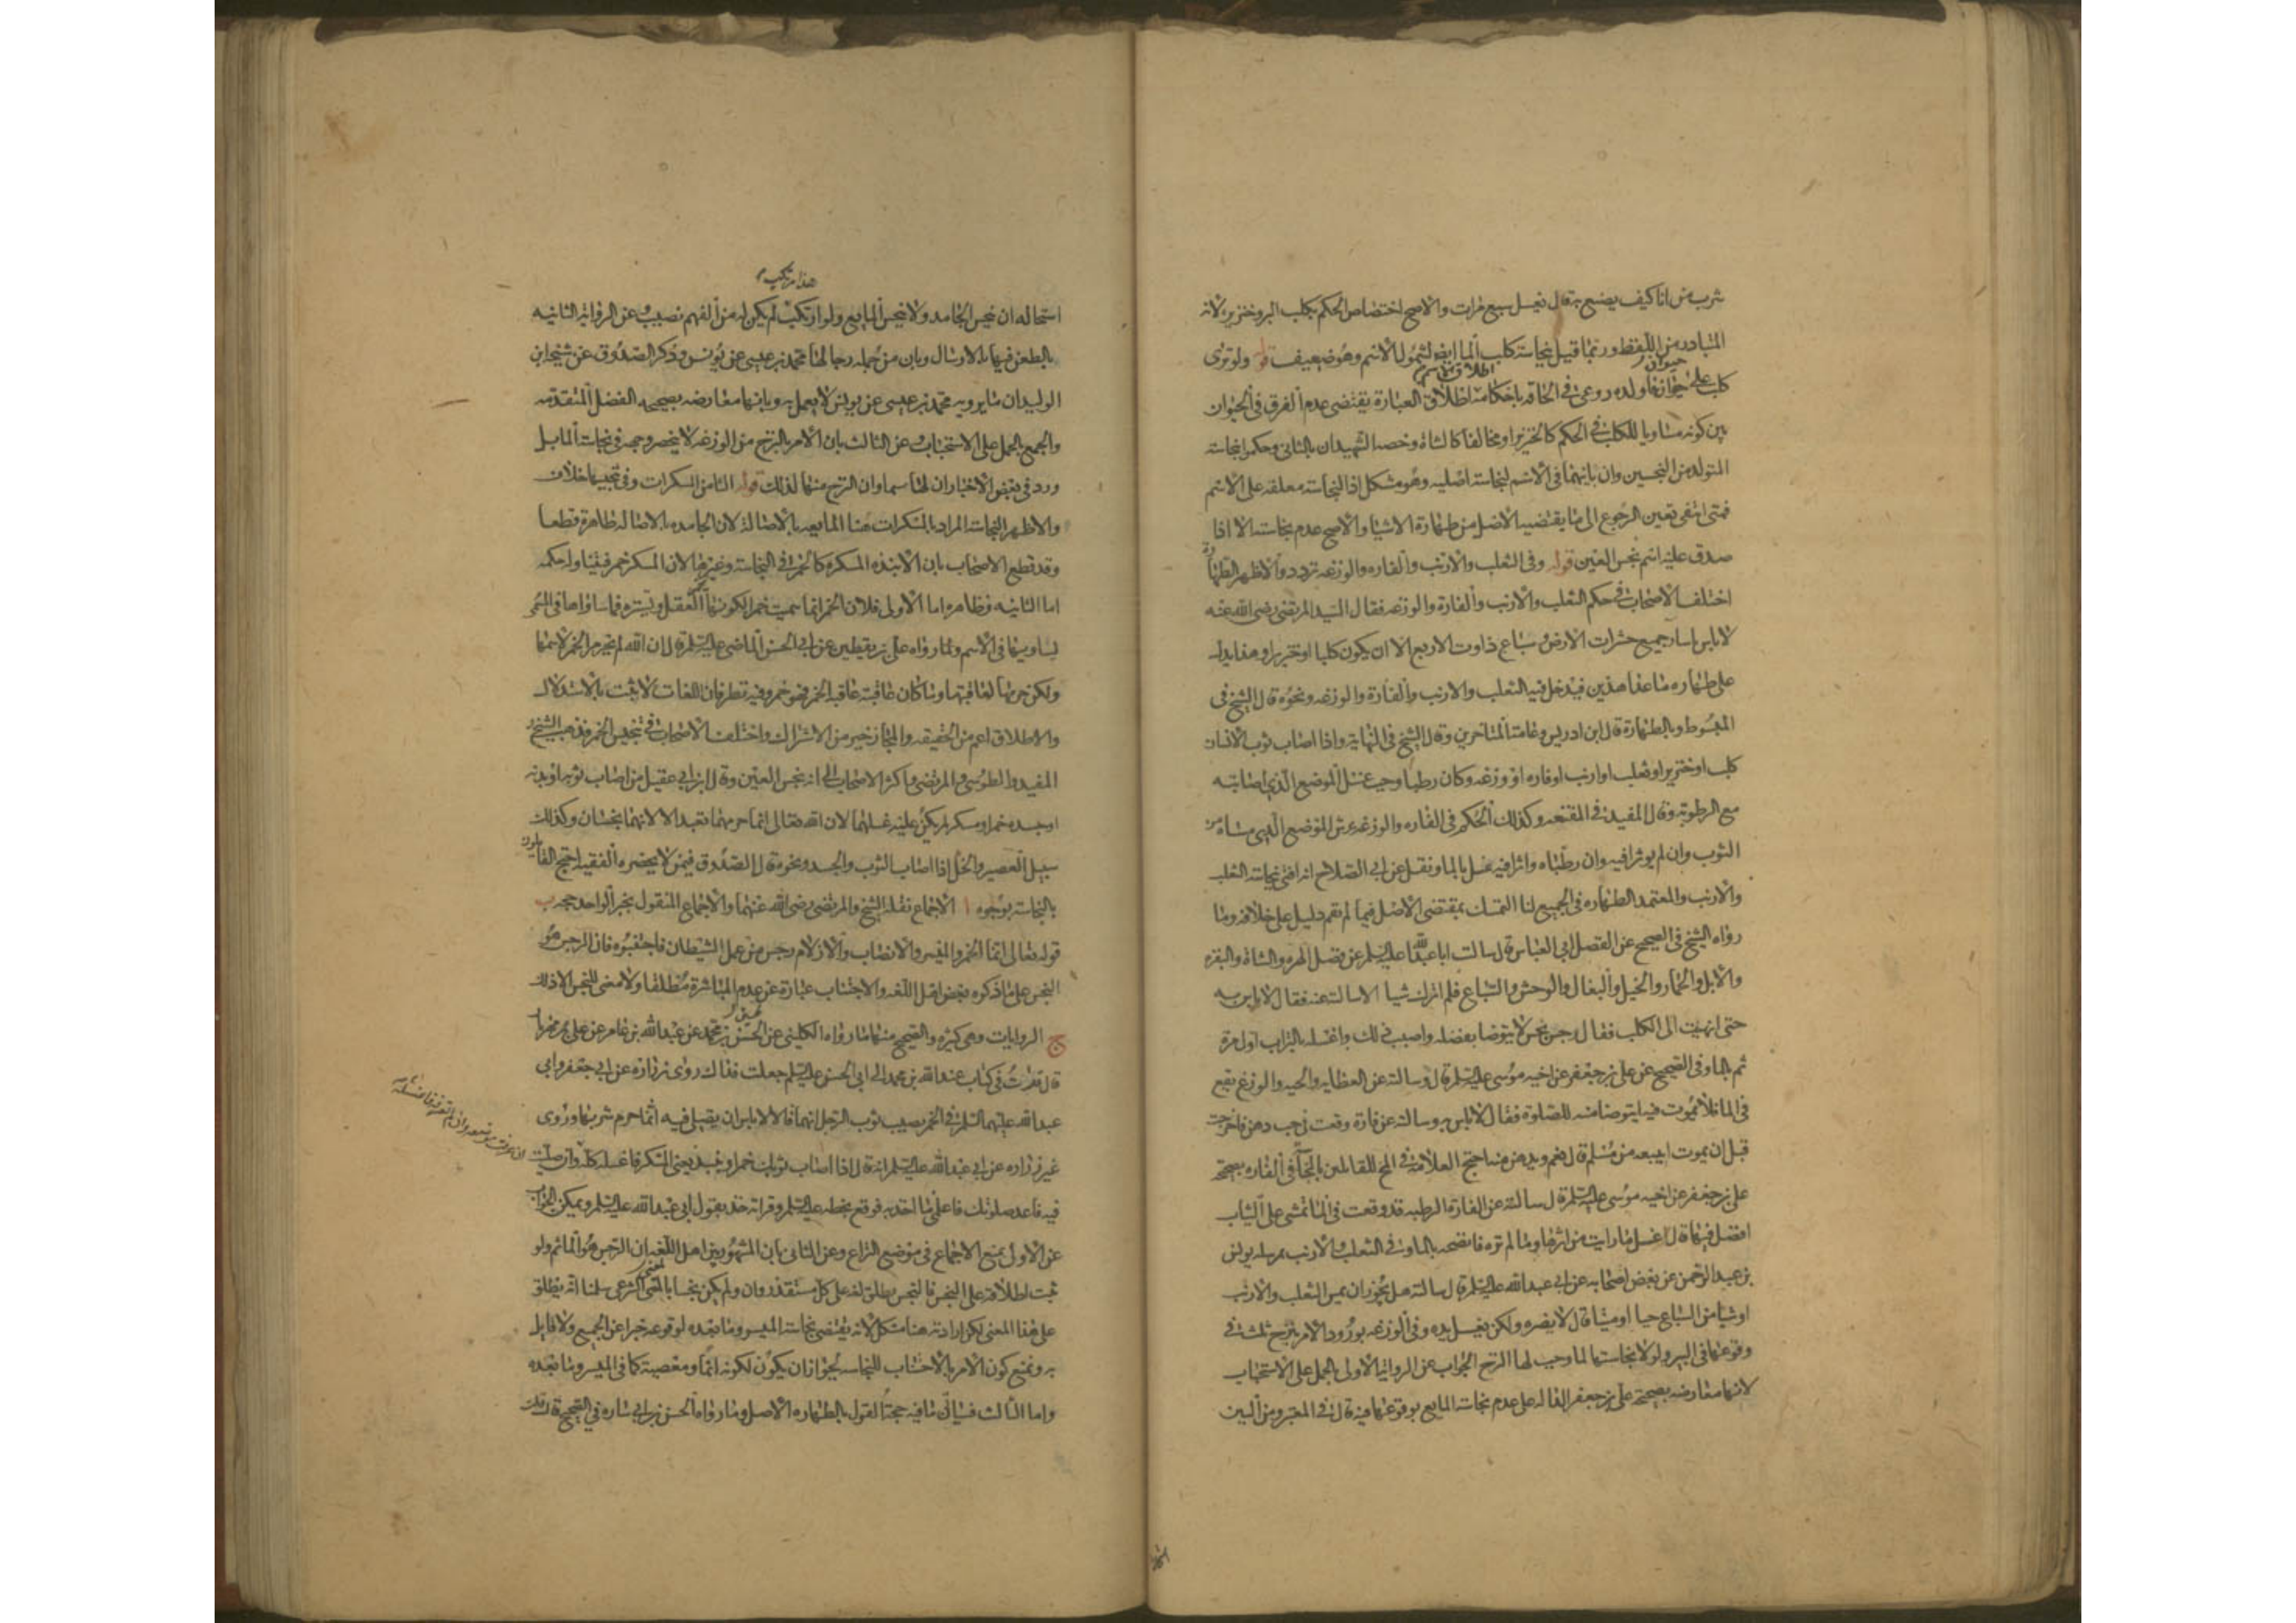 شرب من اناكيف يصنع به قال تغسل سبع مرات والاصح اختصاص الحكم بكلب البر وخنزيره لانه
المتبادر من اللفظ وربما قيل بنجاسة كلب الما ايضا لشمول الاسم وهو ضعيف قوله ولو نزى
كلب على حيوان فاولده روعى فى الحاقه باحكامه اطلاق الاسم اطلاق العبارة يقتضى عدم الفرق فى الحيوان
بين كونه مساويا للكلب فى الحكم كالخنزير او مخالفا كالشاة وخصه الشهيدان بالثانى وحكما بنجاسة
المتولد من النجسين وان باينهما فى الاسم لنجاسة اصليه وهو مشكل اذ النجاسة معلقه على الاسم
فمتى انتفى تعين الرجوع الى ما يقتضيه الاصل من طهارة الاشيا والاصح عدم نجاسته الا اذا
صدق عليه اسم نجس العين قوله وفى الثعلب والارنب والفاره والوزغه تردد والاظهر الطهارة
اختلف الاصحاب فى حكم الثعلب والارنب والفارة والوزغه فقال السيد المرتضى رضى الله عنه
لا باس باسار جميع حشرات الارض وسباع ذوات الاربع الا ان يكون كلبا او خنزيرا وهذا يدل
على طهاره ما عدا هذين فيدخل فيه الثعلب والارنب والفارة والوزغه ونحوه قال الشيخ فى
المبسوط وبالطهارة قال ابن ادريس وعامة المتاخرين وقال الشيخ فى النهاية واذا اصاب ثوب الانسان
كلب او خنزير او ثعلب او ارنب او فاره او وزغه وكان رطبا وجب غسل الموضع الذى اصابته
مع الرطوبة وقال المفيد فى المقنعه وكذلك الحكم فى الفاره والوزغه يرش الموضع الذى مساه من
الثوب وان لم يوثرا فيه وان رطباه واثرا فيه غسل بالما ونقل عن ابى الصلاح انه افتى بنجاسة الثعلب
والارنب والمعتمد الطهاره فى الجميع لنا التمسك بمقتضى الاصل فيما لم تقم دليل على خلافه وما
رواه الشيخ فى الصحيح عن الفضل ابى العباس قال سالت ابا عبد الله عليه السلم عن فضل الهره والشاة والبقره
والابل والحمار والخيل والبغال والوحش والسباع فلم اترك شيا الا سالته عنه فقال لا باس به
حتى انتهيت الى الكلب فقال رجس نجس لا يتوضا بفضله واصبب ذلك واغسله بالتراب اول مرة
ثم بالما وفى الصحيح عن على بن جعفر عن اخيه موسى عليه السلم قال وسالته عن العظايه والحيه والوزغ يقع
فى الما فلا يموت فيه ايتوضا منه للصلوة فقال لا باس به وسالته عن فارة وقعت فى حب دهن فاخرجت
قبل ان يموت ايبيعه من مسلم قال نعم ويدهن منه احتج العلامة فى المخ للقائلين بالنجاسة فى الفاره بصحيحة
على بن جعفر عن اخيه موسى عليه السلم قال سالته عن الفارة الرطبه قد وقعت فى الما تمشى على الثياب
ايصلى فيها قال اغسل ما رايت من اثرها وما لم تره فانضحه بالما وفى الثعلب والارنب بمرسله يونس
بن عبد الرحمن عن بعض اصحابه عن ابى عبد الله عليه السلم قال سالته هل يجوز ان يمس الثعلب والارنب
او شيا من السباع حيا او ميتا قال لا يضره ولكن يغسل يده وفى الوزغه بورود الامر بنزح ثلث فى
وقوعها فى البير ولولا نجاستها لما وجب لها النزح الجواب عن الرواية الاولى بالحمل على الاستحباب
لانها معارضه بصحيحة على بن جعفر الداله على عدم نجاسة المايع بوقوعها فيه قال فى المعتبر ومن البين
هذا مرتكب
استحاله ان ينجس الجامد ولا ينجس المايع ولو ارتكب لم يكن له من الفهم نصيب وعن الرواية الثانيه
بالطعن فيها بالارسال وبان من جمله رجالها محمد بن عيسى عن يونس وذكر الصدوق عن شيخه ابن
الوليد ان ما يرويه محمد بن عيسى عن يونس لا يعمل به وبانها معارضه بصحيحه الفضل المتقدمه
والجمع بالحمل على الاستحباب وعن الثالث بان الامر بالنزح من الوزغه لا ينحصر وجهه فى نجاسة الما بل
ورد فى بعض الاخبار ان لها سما وان النزح منها لذلك قوله الثامن المسكرات وفى تنجيسها خلاف
والاظهر النجاسة المراد بالمسكرات هنا المايعه بالاصالة لان الجامده بالاصاله طاهرة قطعا
وقد قطع الاصحاب بان الانبذه المسكره كالخمر فى النجاسة وغيرها لان المسكر خمر فيتناوله حكمه
اما الثانيه فظاهره اما الاولى فلان الخمر انما سميت خمرا لكونها تخمر العقل وتستره فما ساواها فى المسمى
يساويها فى الاسم ولما رواه على بن يقطين عن ابى الحسن الماضى عليه السلم قال ان الله لم يحرم الخمر لاسمها
ولكن حرمها لعاقبتها وما كان عاقبته عاقبة الخمر فهو خمر وفيه نظر فان اللغات لا تثبت بالاستدلال
والاطلاق اعم من الحقيقه والمجاز خير من الاشتراك واختلف الاصحاب فى تنجيس الخمر فذهب الشيخ
المفيد والطوسى والمرتضى واكثر الاصحاب الى انه نجس العين وقال ابن ابى عقيل من اصاب ثوبه او بدنه
او جسده خمر او مسكر لم يكن عليه غسلهما لان الله تعالى انما حرمهما تعبدا لا لانهما نجسان وكذلك
سبيل العصير والخل اذا اصاب الثوب والجسد ونحوه قال الصدوق فيمن لا يحضره الفقيه احتج القائلون
بالنجاسة بوجوه ا الاجماع نقله الشيخ والمرتضى رضى الله عنهما والاجماع المنقول بخبر الواحد حجه ب
قوله تعالى انما الخمر والميسر والانصاب والازلام رجس من عمل الشيطان فاجتنبوه فان الرجس هو
النجس على ما ذكره بعض اهل اللغه والاجتناب عبارة عن عدم المباشرة مطلقا ولا معنى للنجس الا ذلك
ج الروايات وهى كثيره والصحيح منها ما رواه الكلينى عن الحسين بن محمد عن عبد الله بن عامر عن على بن مهزيار
قال قرات فى كتاب عبد الله بن محمد الى ابى الحسن عليه السلم جعلت فداك روى زرارة عن ابى جعفر وابى
عبد الله عليهما السلم فى الخمر يصيب ثوب الرجل انهما قالا لا باس ان يصلى فيه انما حرم شربها وروى
غير زراره عن ابى عبد الله عليه السلم انه قال اذا اصاب ثوبك خمر او نبيذ يعنى المسكر فاغسله كله وان صليت
ان عرفت موضعه وان لم تعرف موضعه فاغسله
فيه فاعد صلوتك فاعلمنى ما اخذ به فوقع بخطه عليه السلم وقراته خذ بقول ابى عبد الله عليه السلم ويمكن الجواب
عن الاول بمنع الاجماع فى موضع النزاع وعن الثانى بان المشهور بين اهل اللغه ان الرجس هو الماثم ولو
ثبت اطلاقه على النجس فالنجس يطلق لغه على كل مستقذر وان لم يكن نجسا بالمعنى الشرعى سلمنا انه يطلق
على هذا المعنى لكن ارادته هنا مشكل لانه يقتضى نجاسة الميسر وما بعده لوقوعه خبرا عن الجميع ولا قايل
به ونمنع كون الامر بالاجتناب للنجاسه لجواز ان يكون لكونه اثما ومعصية كما فى الميسر وما بعده
واما الثالث فسياتى ما فيه حجة القول بالطهاره الاصل وما رواه الحسن بن ابى ساره فى الصحيح قال قلت